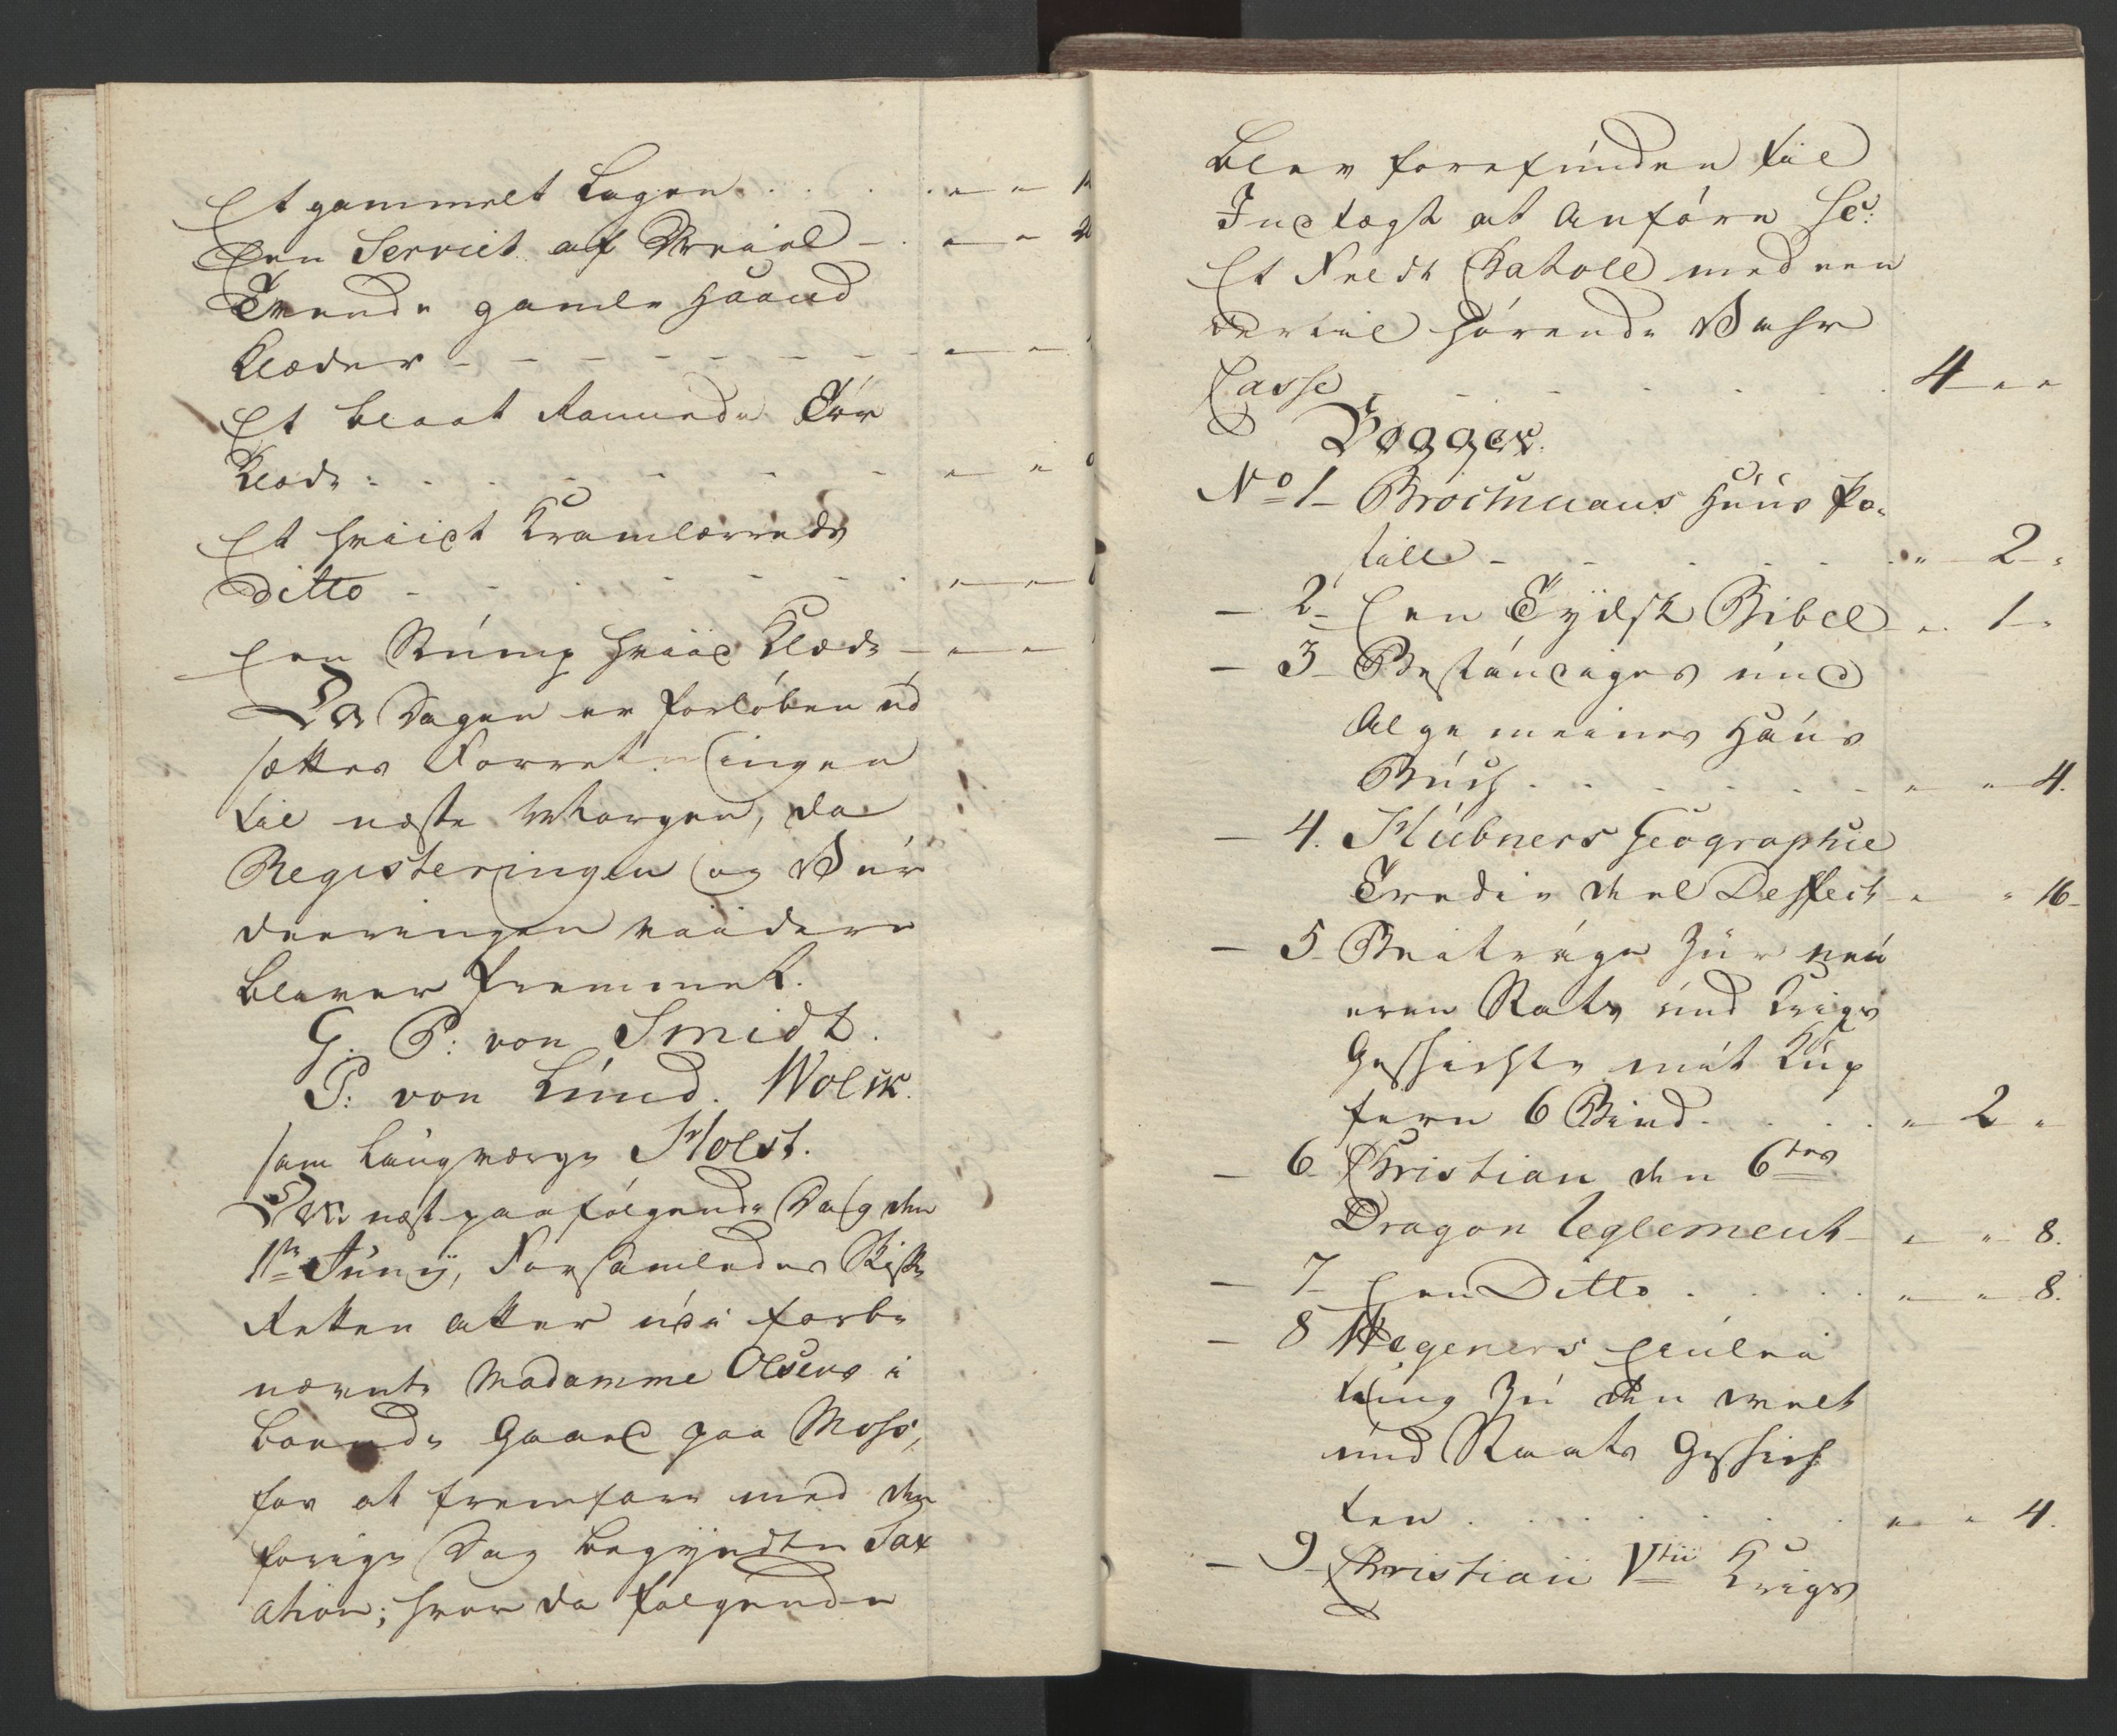 Et gammelt Lagen . . . . " — "
Een Serviet af Dreiel — . " — "
Tvende gamle Haand
Klæder - - - - - - - - " — "
Et blaat Rannede Tør
Klæde : . . - - - - " — "
Et hviidt Kramlærreds
Ditto - - . - - - . " — "
Een Stump hviid Klæde — " — "
Da Dagen er forløben ud
sættes Forretningen
til næste Morgen, da
Registeringen og Vur
deeringen viidere
bliver fremmet.
G. P: von Smidt.
P: von Lund. Wolck.
som Laugværge Holst.
Den næst paafølgende Dag den
1te Junij, Forsamledes Skifte
Retten atter udi forbe
nævnte Madamme Olsens i
boende Gaard paa Moss,
for at fremfare med den
forige Dag begyndte Tax
ation; hvor da følgende
blev forefunden til
Indtægt at Anføre Sc:
Et Feldt Chatoll med een
dertil hørende Vahr
Casse . - - . . . . 4 — " "
Bøgger.
No 1 — Brochmans Huus Po-
still - - . . . . " — 2 — "
— 2 — Een Tydsk Bibel — " 1 — "
— 3 — Bestándiges und
Algemeines Haus
Buch . . . . . . — " — " 4.
— 4. Hübners Geographie
Tredie deel Deffect — " " 16 —
— 5 — Beitráge zur neu
eren Stats und Krigs
Geschichte mit Kup
fern 6 Bind . . . . " — 2 — "
— 6 — Christian den 6tes
Dragon Reglement — " — " 8.
— 7 — Een Ditto . . . . . " — " 8.
— 8 Wegeners Einlei
tung zu den welt
und Staats Geschich
ten . . . . . . . " — " 4.
— 9 — Christiani Vtii Krigs